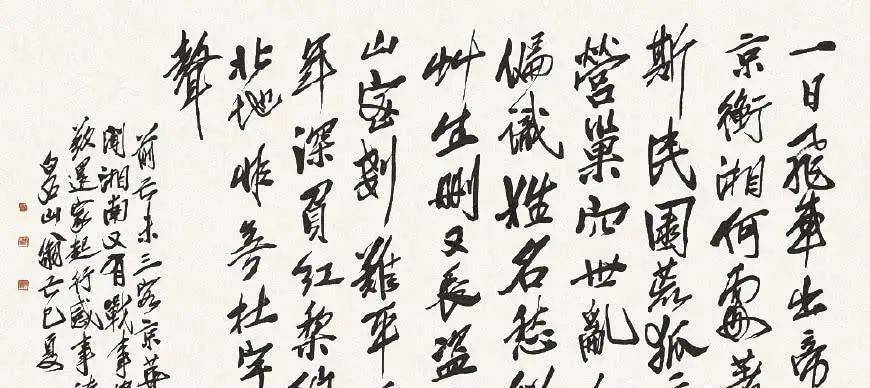 一日飛車出帝
京衡湘何處著
斯民園荒狐
營巢穴世亂
偏識姓名愁
艸生刪又長盜
山密剗難平
年深買紅梨
北地非無杜宇
聲
前己未三客京華
聞湘南又有戰事
欲還家起行感事
白石山翁己巳夏